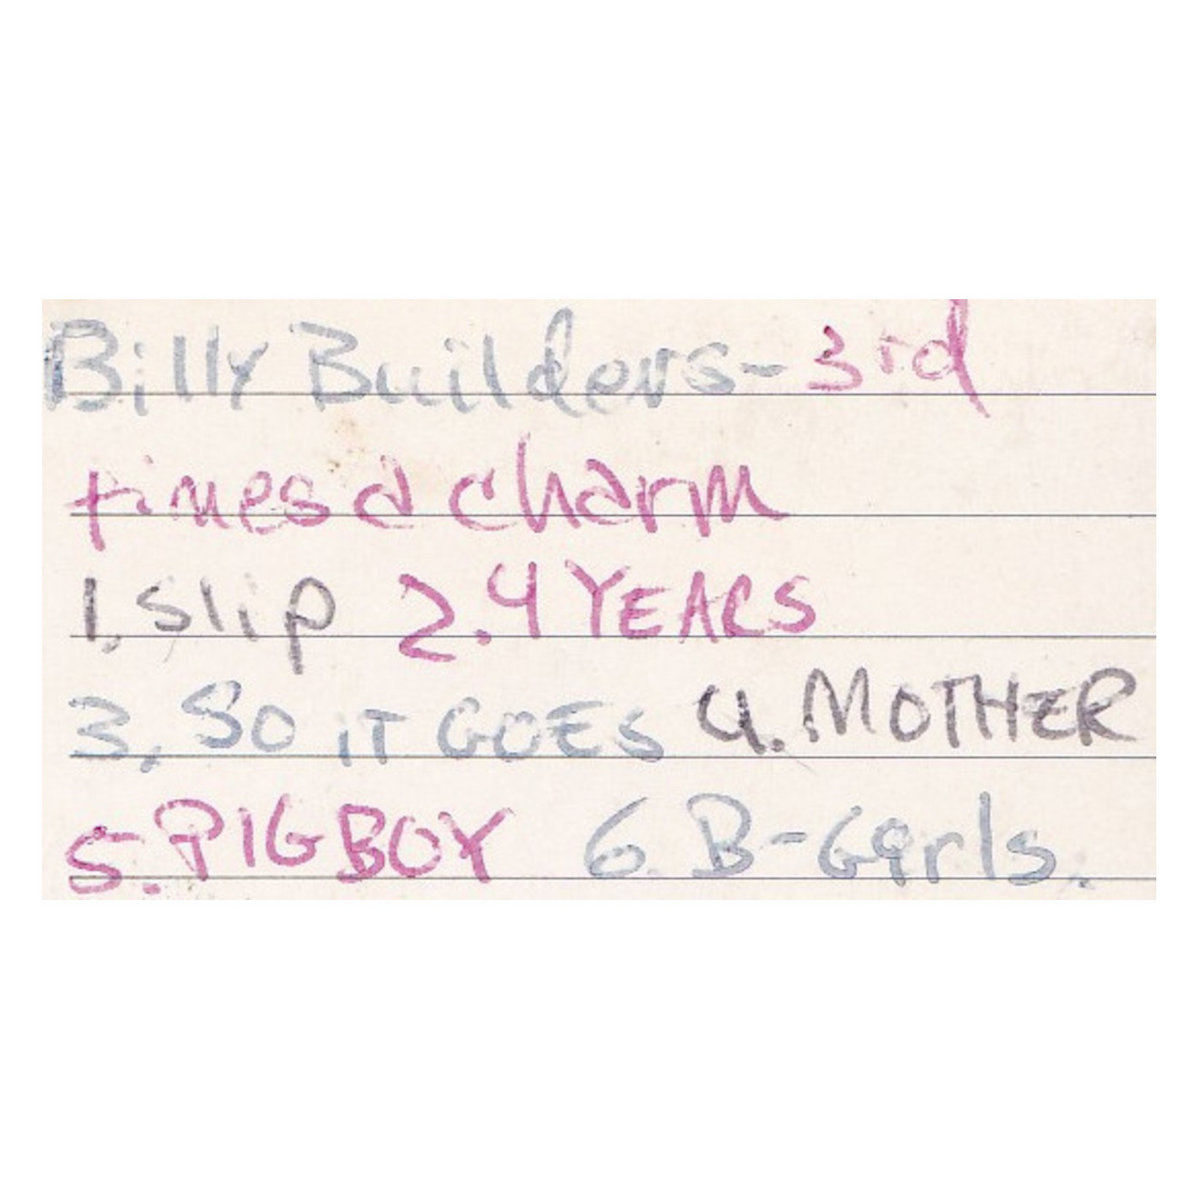 Billy Builders - 3rd
times a charm
1. slip 2. 4 YEARS
3. So iT GOES 4. MOTHER
5. PIG BOY 6. B-Girls.